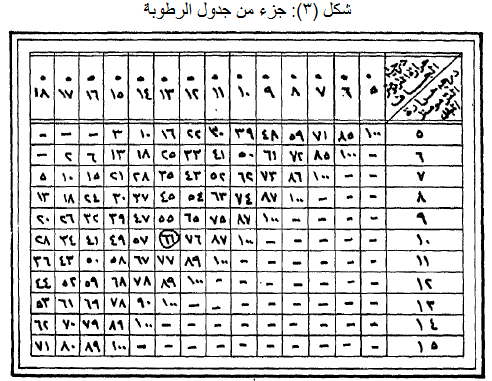 شكل (٣): جزء من جدول الرطوبة
درجة حرارة الترمومتر الجاف
درجة حرارة الترمومتر المبلل
٥° ٦° ٧° ٨° ٩° ١٠° ١١° ١٢° ١٣° ١٤° ١٥° ١٦° ١٧° ١٨°
٥ ١٠٠ ٨٥ ٧١ ٥٩ ٤٨ ٣٩ ٣٠ ٢٢ ١٦ ١٠ ٣ - - -
٦ - ١٠٠ ٨٥ ٧٢ ٦١ ٥٠ ٤١ ٣٣ ٢٥ ١٨ ١٣ ٦ ٢ -
٧ - - ١٠٠ ٨٦ ٧٣ ٦٢ ٥٢ ٤٣ ٣٥ ٢٨ ٢١ ١٥ ١٠ ٥
٨ - - - ١٠٠ ٨٧ ٧٤ ٦٣ ٥٤ ٤٥ ٣٧ ٣٠ ٢٤ ١٨ ١٣
٩ - - - - ١٠٠ ٨٧ ٧٥ ٦٥ ٥٥ ٤٧ ٣٩ ٣٢ ٢٦ ٢٠
١٠ - - - - - ١٠٠ ٨٧ ٧٦ ٦٦ ٥٧ ٤٩ ٤١ ٣٤ ٢٨
١١ - - - - - - ١٠٠ ٨٩ ٧٧ ٦٧ ٥٨ ٥٠ ٤٣ ٣٦
١٢ - - - - - - - ١٠٠ ٨٩ ٧٨ ٦٨ ٥٩ ٥٢ ٤٤
١٣ - - - - - - - - ١٠٠ ٩٠ ٧٨ ٦٩ ٦١ ٥٣
١٤ - - - - - - - - - ١٠٠ ٨٩ ٧٩ ٧٠ ٦٢
١٥ - - - - - - - - - - ١٠٠ ٨٩ ٨٠ ٧١